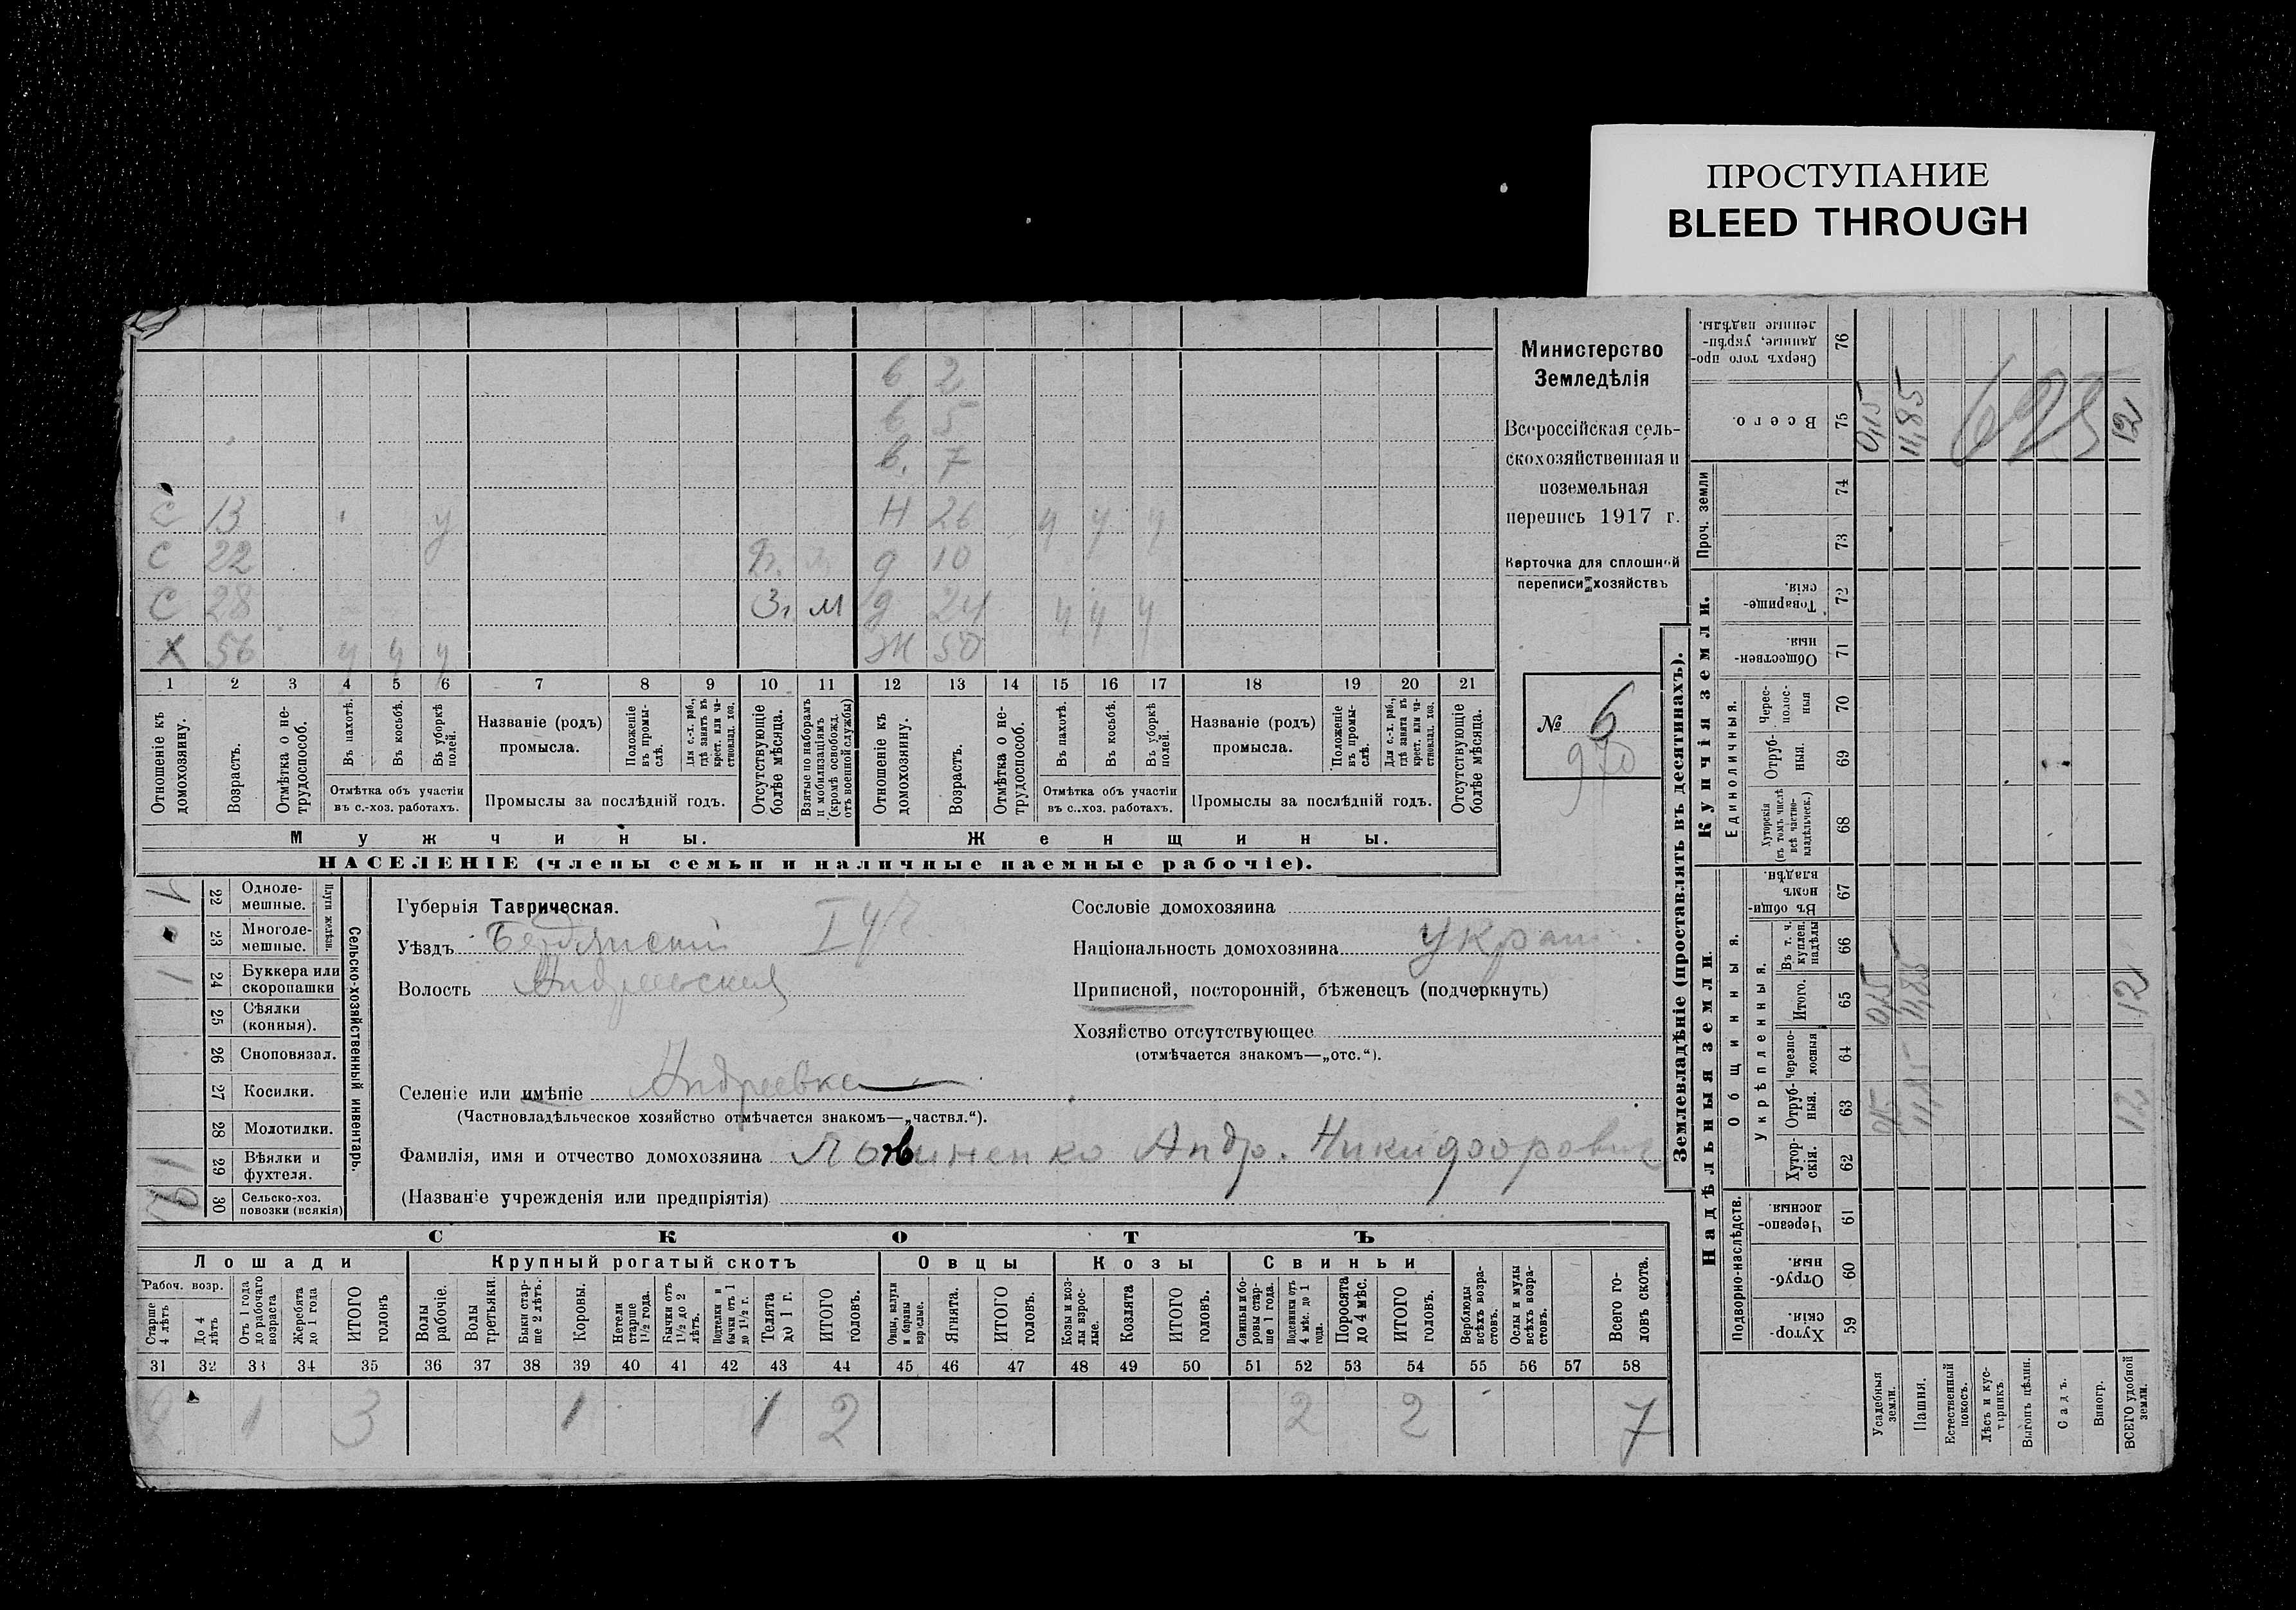 ПРОСТУПАНИЕ
BLEED THROUGH
Министерство
Земледѣлія
Всероссійская сель-
скохозяйственная и
поземельная
перепись 1917 г.
Карточка для сплошной
переписи хозяйствъ
№ 6
970
в 2
в 5
в. 7
С 13 у Н 26 у у у
С 22 д 10
С 28 3 г. м д 24 у у у
Х 56 у у у Ж 50
1 2 3 4 5 6 7 8 9 10 11 12 13 14 15 16 17 18 19 20 21
Отношеніе къ домохозяину.
Возрастъ.
Отмѣтка о не-трудоспособ.
Въ пахотѣ.
Въ косьбѣ.
Въ уборкѣ полей.
Отмѣтка объ участіи въ с.-хоз. работахъ.
Названіе (родъ) промысла.
Положеніе въ промы-слѣ.
Для с.-х. раб., гдѣ занятъ въ крест. или ча-стновлад. хоз.
Промыслы за послѣдній годъ.
Отсутствующіе болѣе мѣсяца.
Взятые по наборамъ и мобилизаціямъ (кромѣ освобожд. отъ военной службы)
Отношеніе къ домохозяину.
Возрастъ.
Отмѣтка о не-трудоспособ.
Въ пахотѣ.
Въ косьбѣ.
Въ уборкѣ полей.
Отмѣтка объ участіи въ с..хоз. работахъ.
Названіе (родъ) промысла.
Положеніе въ промы-слѣ.
Для с.-х. раб., гдѣ занята въ крест. или ча-стновлад. хоз.
Промыслы за послѣдній годъ.
Отсутствующіе болѣе мѣсяца.
Мужчины. Женщины.
НАСЕЛЕНІЕ (члены семьи и наличные наемные рабочіе).
Сельско-хозяйственный инвентарь.
Плуги желѣзн.
22 Одноле-мешные.
23 Многоле-мешные.
24 Буккера или скоропашки
25 Сѣялки (конныя).
26 Сноповязал.
27 Косилки.
28 Молотилки.
29 Вѣялки и фухтеля.
30 Сельско-хоз. повозки (всякія)
1
1
1
Губернія Таврическая.
Уѣздъ Бердянскій
Волость Андреевская
Селеніе или имѣніе Андреевка
(Частновладѣльческое хозяйство отмѣчается знакомъ—„частвл.“).
Фамилія, имя и отчество домохозяина Андр. Никифорович
(Названіе учрежденія или предпріятія)
Сословіе домохозяина
Національность домохозяина Украин.
Приписной, посторонній, бѣженецъ (подчеркнуть)
Хозяйство отсутствующее
(отмѣчается знакомъ—„отс.“).
СКОТЪ
Лошади Крупный рогатый скотъ Овцы Козы Свиньи
Рабоч. возр.
Старше 4 лѣтъ
До 4 лѣтъ
Отъ 1 года до рабочаго возраста
Жеребята до 1 года
ИТОГО головъ
Волы рабочіе.
Волы третьяки.
Быки стар-ше 2 лѣтъ.
Коровы.
Нетели старше 1 1/2 года.
Бычки отъ 1 1/2 до 2 лѣтъ.
Подтелки и бычки отъ 1 до 1 1/2 г.
Телята до 1 г.
ИТОГО головъ.
Овцы, валухи и бараны взрослые.
Ягнята.
ИТОГО головъ.
Козы и коз-лы взрос-лые.
Козлята
ИТОГО головъ.
Свиньи и бо-ровы стар-ше 1 года.
Подсвинки отъ 4 мѣс. до 1 года.
Поросята до 4 мѣс.
ИТОГО головъ.
Верблюды всѣхъ возра-стовъ.
Ослы и мулы всѣхъ возра-стовъ.
Всего го-ловъ скота.
31 32 33 34 35 36 37 38 39 40 41 42 43 44 45 46 47 48 49 50 51 52 53 54 55 56 57 58
2 1 3 1 1 2 2 2 7
Землевладѣніе (проставлять въ десятинахъ).
Надѣльныя земли.
Купчія земли.
Проч. земли
Подворно-наслѣдств.
Общинныя.
Укрѣпленныя.
Единоличныя.
Сверхъ того про-данные, укрѣп-ленные надѣлы. 76
Всего. 75
74
73
Товарище-скія. 72
Обществен-ныя. 71
Черес-полос-ныя 70
Отруб-ныя. 69
Хуторскія (въ томъ числѣ всѣ частно-владѣльческ.) 68
Въ общин-номъ владѣн. 67
Въ т. ч. куплен. надѣлы 66
Итого. 65
Черезпо-лосныя 64
Отруб-ныя. 63
Хутор-скія. 62
Черезпо-лосныя. 61
Отруб-ныя. 60
Хутор-скія. 59
Усадебныя земли.
Пашня.
Естественный покосъ.
Лѣсъ и кус-тарникъ.
Выгонъ цѣлин.
Садъ.
Виногр.
ВСЕГО удобной земли.
0,15 11,85 12
0,15 11,85 12
0,15 11,85 12
625